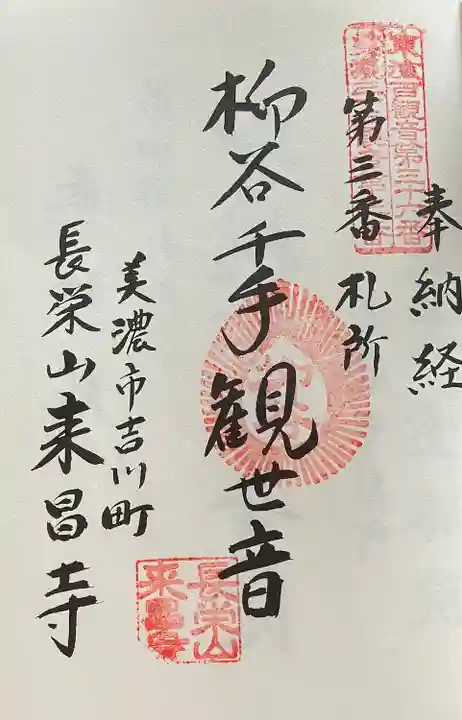 奉納経
東海百観音第三十六番
第三番
札所
柳谷千手観世音
美濃市吉川町
長栄山来昌寺
長栄山
来昌寺